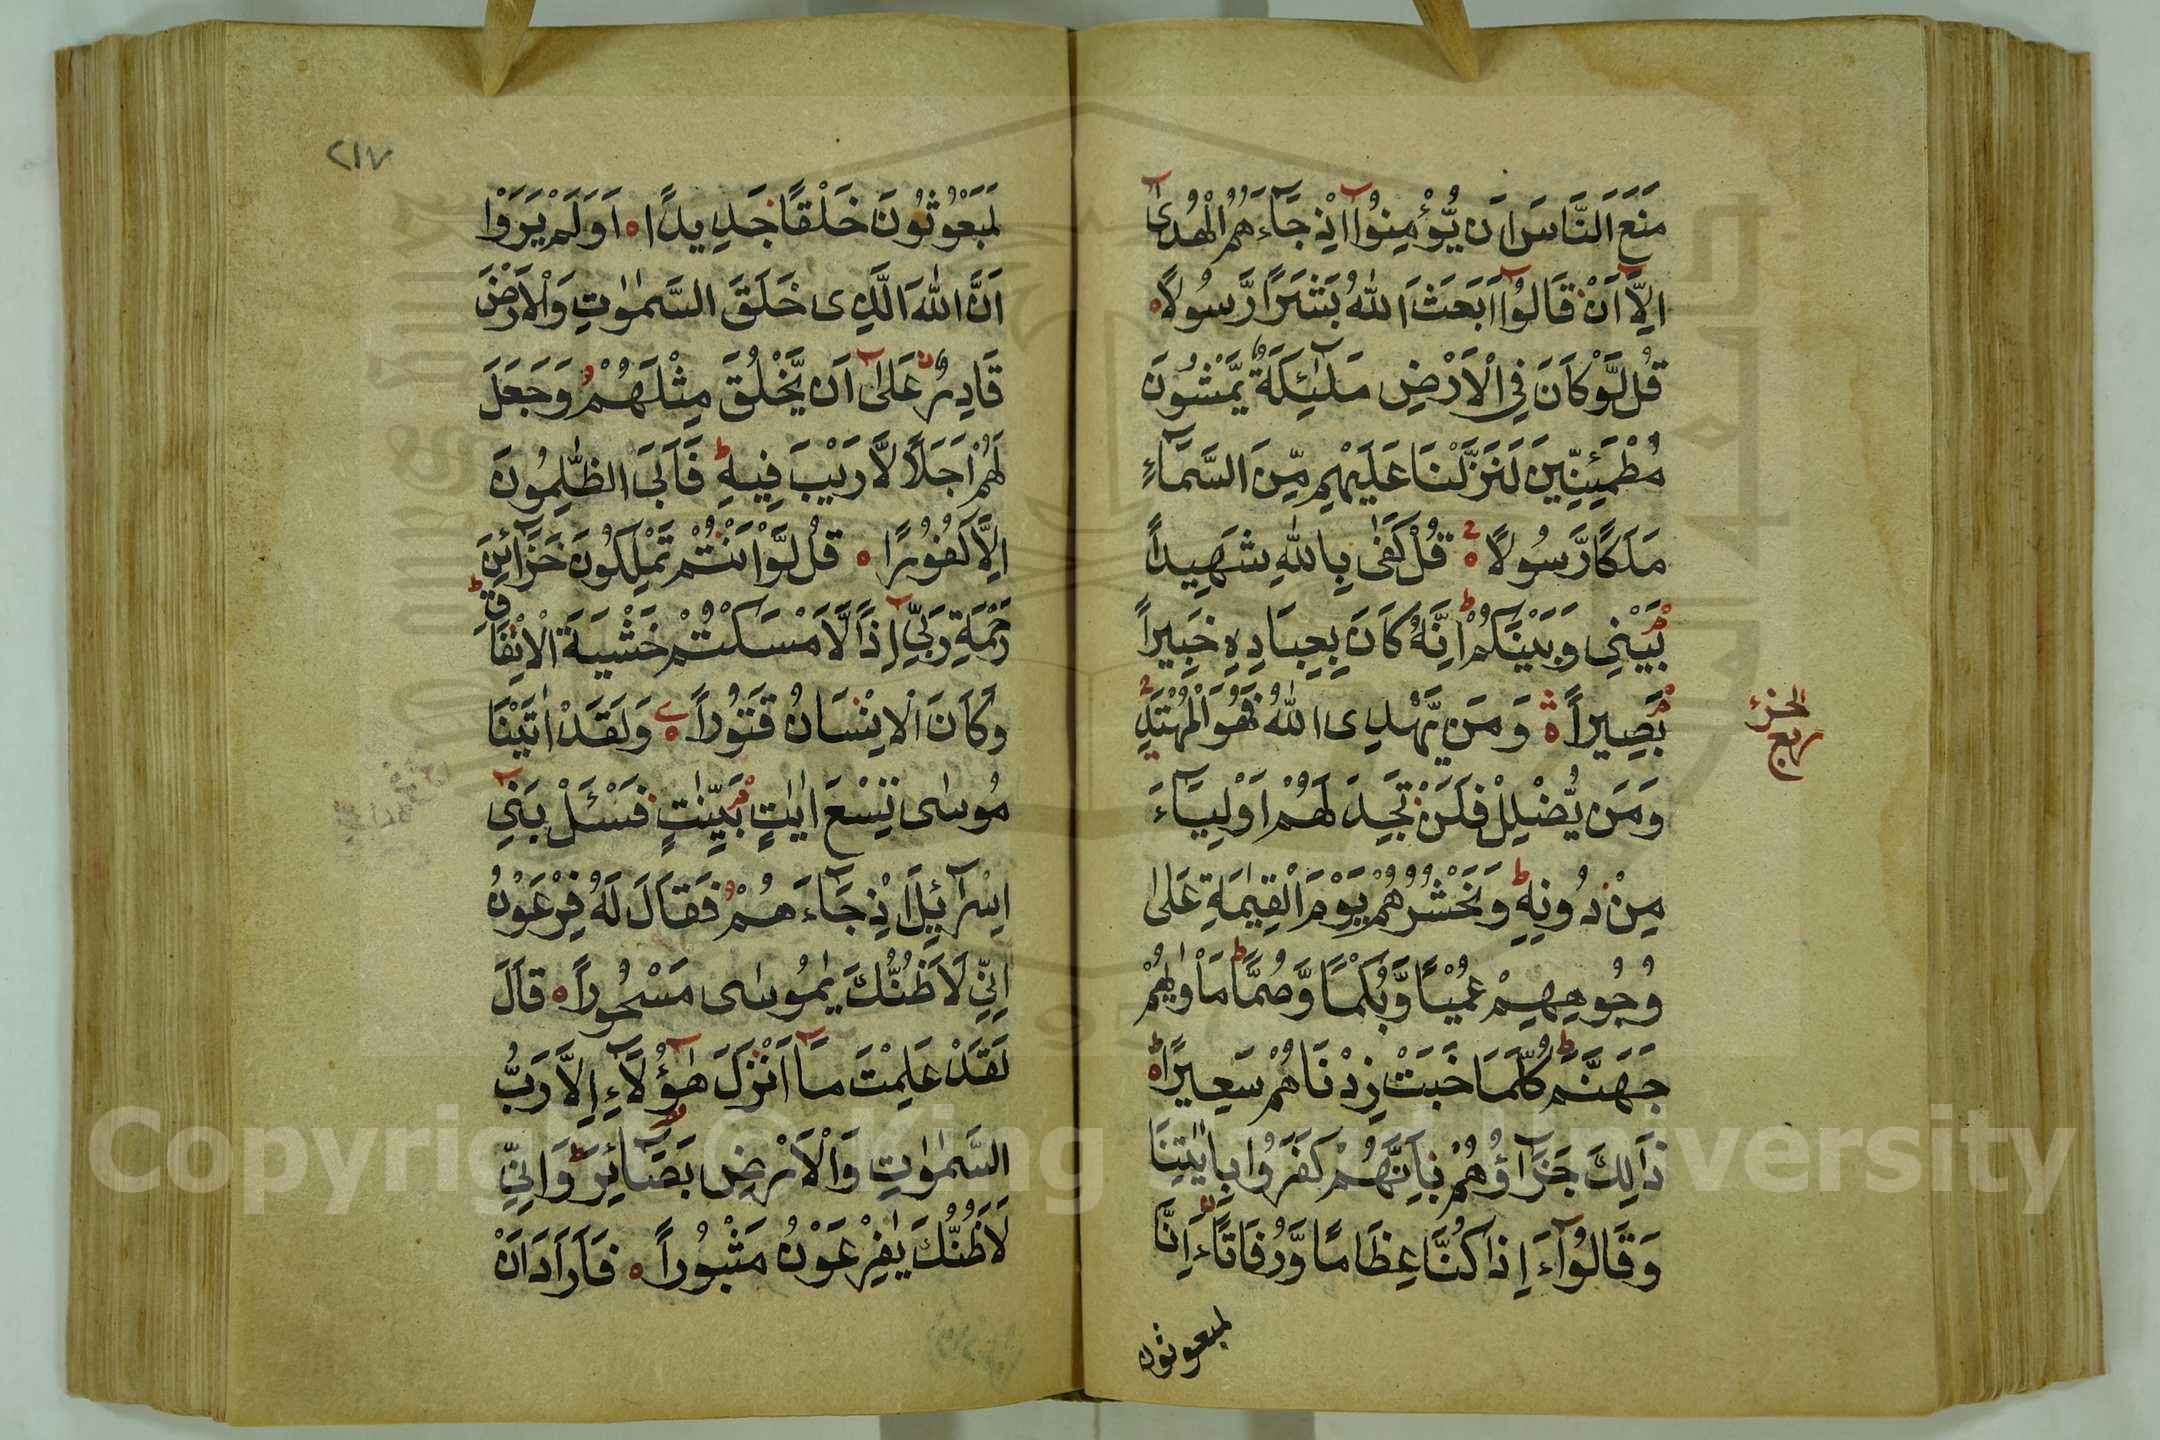 مَنَعَ النَّاسَ اَن يُّؤْمِنُوٓا اِذْ جَآءَهُمُ الْهُدٰىٓ
اِلَّآ اَنْ قَالُوْٓا اَبَعَثَ اللهُ بَشَرًا رَّسُولًا
قُل لَّوْ كَانَ فِي الْاَرْضِ مَلٰٓئِكَةٌ يَّمْشُونَ
مُطْمَئِنِّينَ لَنَزَّلْنَا عَلَيْهِم مِّنَ السَّمَآءِ
مَلَكًا رَّسُولًا قُلْ كَفٰى بِاللهِ شَهِيدًا
بَيْنِي وَبَيْنَكُمْ اِنَّهُ كَانَ بِعِبَادِهِ خَبِيرًا
بَصِيرًا وَمَن يَّهْدِى اللهُ فَهُوَ الْمُهْتَدِ
الجزء
ربع
وَمَن يُّضْلِلْ فَلَنْ تَجِدَ لَهُمْ اَوْلِيَآءَ
مِنْ دُونِهِ وَنَحْشُرُهُمْ يَوْمَ الْقِيٰمَةِ عَلٰى
وُجُوهِهِمْ عُمْيًا وَّبُكْمًا وَّصُمًّا مَأْوٰىهُمْ
جَهَنَّمُ كُلَّمَا خَبَتْ زِدْنَاهُمْ سَعِيرًا
ذَالِكَ جَزَآؤُهُمْ بِاَنَّهُمْ كَفَرُوا بِاٰيٰتِنَا
وَقَالُوْٓا ءَاِذَا كُنَّا عِظَامًا وَّرُفَاتًا ءَاِنَّا
لمبعوثون
٢١٧
لَمَبْعُوْثُونَ خَلْقًا جَدِيدًا اَوَلَمْ يَرَوْا
اَنَّ اللهَ الَّذِى خَلَقَ السَّمٰوٰتِ وَالْاَرْضَ
قَادِرٌ عَلٰىٓ اَن يَّخْلُقَ مِثْلَهُمْ وَجَعَلَ
لَهُمْ اَجَلًا لَّا رَيْبَ فِيهِ فَاَبَى الظّٰلِمُونَ
اِلَّا كُفُوْرًا قُل لَّوْ اَنْتُمْ تَمْلِكُونَ خَزَآئِنَ
رَحْمَةِ رَبِّيٓ اِذًا لَّاَمْسَكْتُمْ خَشْيَةَ الْاِنْفَاقِ
وَكَانَ الْاِنْسَانُ قَتُوْرًا وَلَقَدْ اٰتَيْنَا
مُوسٰى تِسْعَ اٰيٰتٍ بَيِّنٰتٍ فَسْـَٔلْ بَنِيٓ
اِسْرَآئِيلَ اِذْ جَآءَهُمْ فَقَالَ لَهُ فِرْعَوْنُ
اِنِّي لَاَظُنُّكَ يٰمُوسٰى مَسْحُورًا قَالَ
لَقَدْ عَلِمْتَ مَآ اَنْزَلَ هٰٓؤُلَآءِ اِلَّا رَبُّ
السَّمٰوٰتِ وَالْاَرْضِ بَصَآئِرَ وَاِنِّي
لَاَظُنُّكَ يٰفِرْعَوْنُ مَثْبُورًا فَاَرَادَ اَنْ
Copyright © King
University